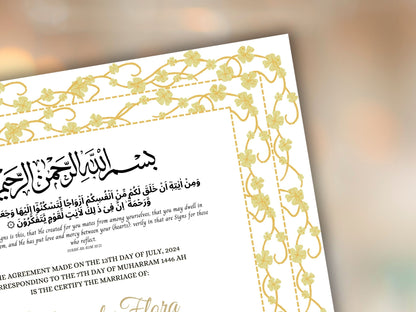 بسم الله الرحمن الرحيم
وَمِنْ اٰيٰتِهٖٓ اَنْ خَلَقَ لَكُمْ مِّنْ اَنْفُسِكُمْ اَزْوَاجًا لِّتَسْكُنُوْٓا اِلَيْهَا وَجَعَلَ
وَّرَحْمَةً ۗ اِنَّ فِيْ ذٰلِكَ لَاٰيٰتٍ لِّقَوْمٍ يَّتَفَكَّرُوْنَ
igns is this, that He created for you mates from among yourselves, that you may dwell in
em, and He has put love and mercy between your (hearts); verily in that are Signs for those
who reflect.
E AGREEMENT MADE ON THE 13TH DAY OF JULY, 2024
RRESPONDING TO THE 7TH DAY OF MUHARRAM 1446 AH
IS THE CERTIFY THE MARRIAGE OF:
Flora